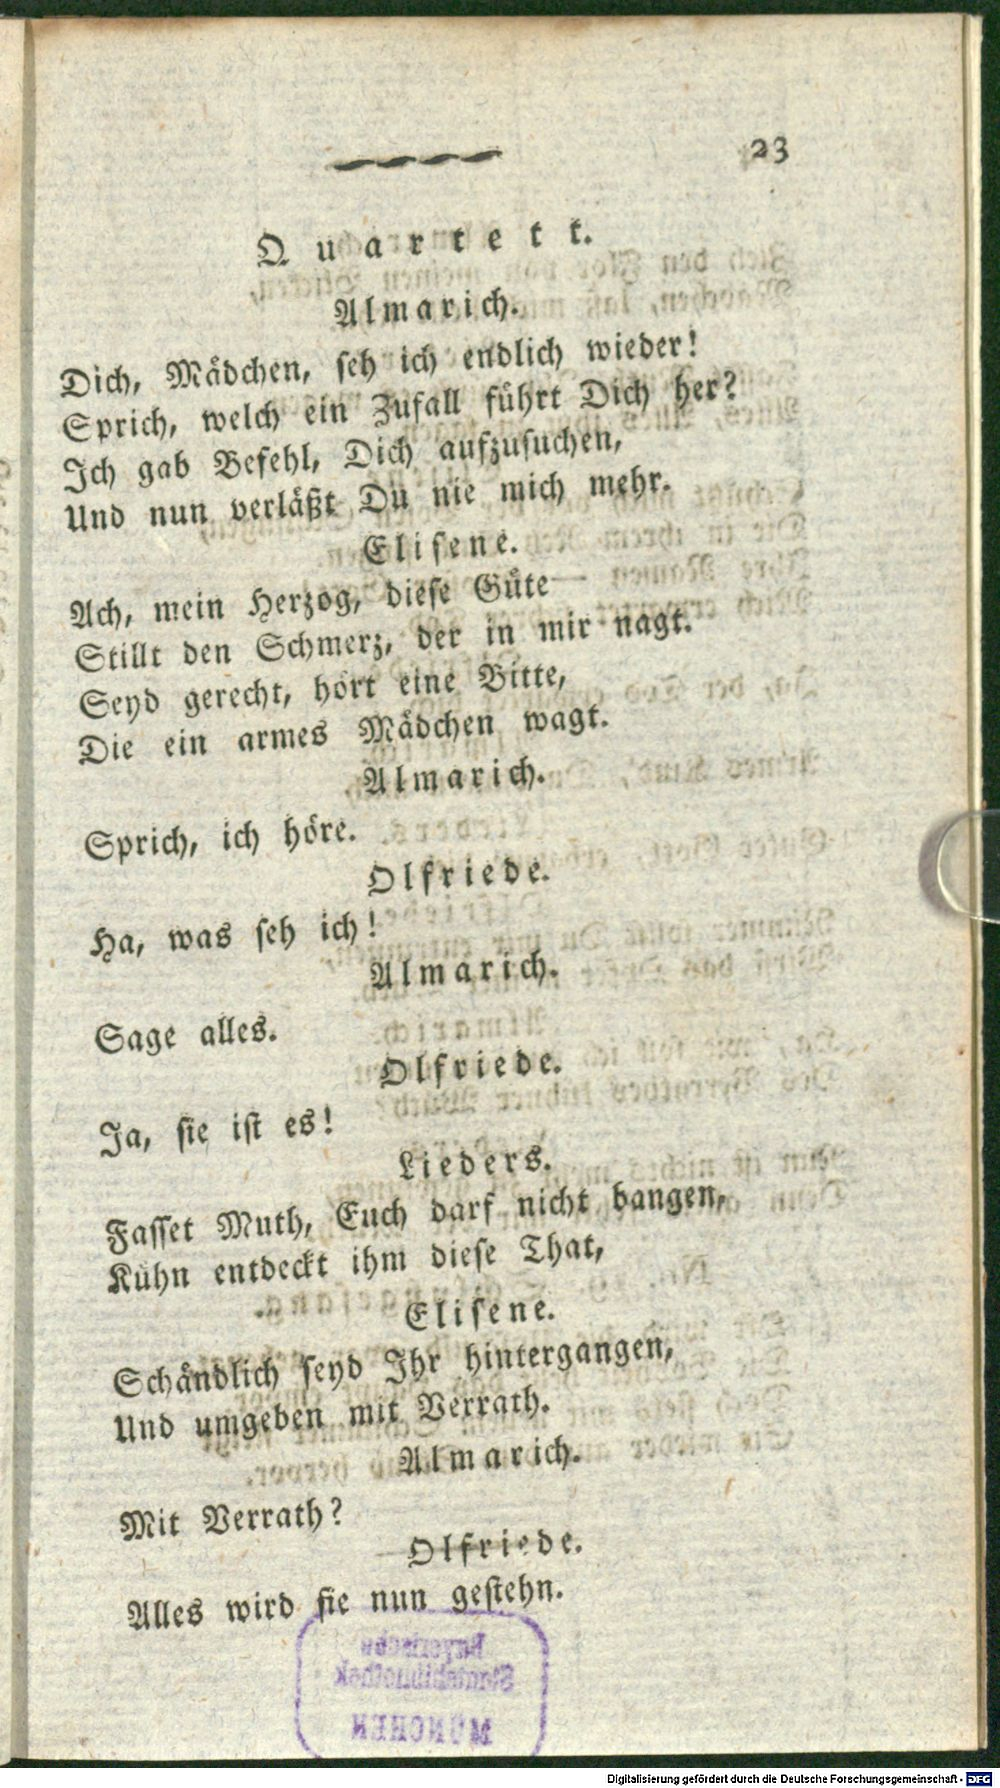 23
Quartett.
Almarich.
Dich, Mädchen, seh ich endlich wieder!
Sprich, welch ein Zufall führt Dich her?
Ich gab Befehl, Dich aufzusuchen,
Und nun verläßt Du nie mich mehr.
Elisene.
Ach, mein Herzog, diese Güte
Stillt den Schmerz, der in mir nagt.
Seyd gerecht, hört eine Bitte,
Die ein armes Mädchen wagt.
Almarich.
Sprich, ich höre.
Olfriede.
Ha, was seh ich!
Almarich.
Sage alles.
Olfriede.
Ja, sie ist es!
Lieders.
Fasset Muth, Euch darf nicht bangen,
Kühn entdeckt ihm diese That,
Elisene.
Schändlich seyd Ihr hintergangen,
Und umgeben mit Verrath.
Almarich.
Mit Verrath?
Olfriede.
Alles wird sie nun gestehn.
Bayerische
Staatsbibliothek
MÜNCHEN
Digitalisierung gefördert durch die Deutsche Forschungsgemeinschaft - DFG